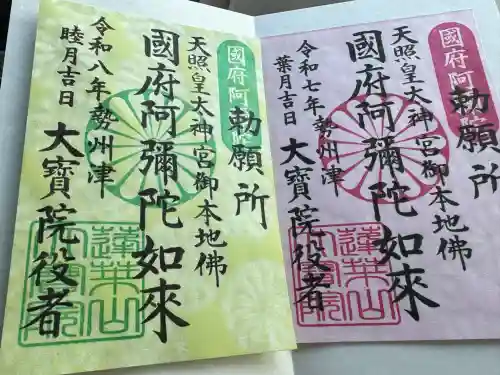 勅願所
國府阿
天照皇太神宮御本地佛
國府阿彌陀如來
令和七年勢州津
葉月吉日
大寶院役者
蓮華山
勅願所
國府阿
天照皇太神宮御本地佛
國府阿彌陀如來
令和八年勢州津
睦月吉日
大寶院役者
蓮華山